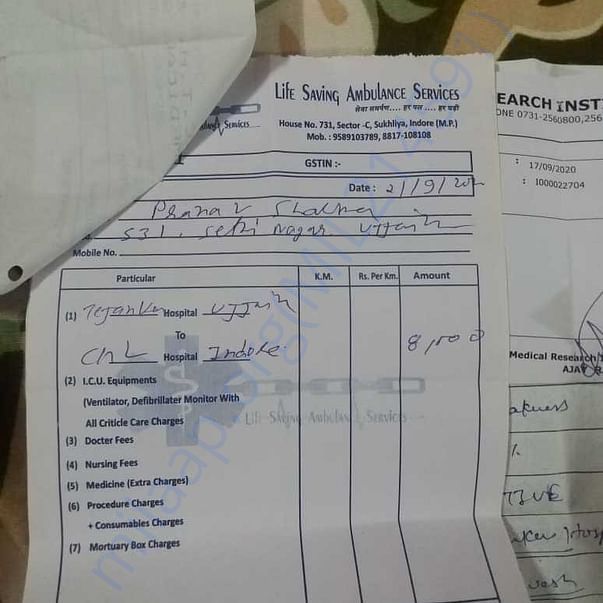 Life Saving Ambulance Services
सेवा समर्पण.... हर पल.... हर घड़ी
Services
House No. 731, Sector -C, Sukhliya, Indore (M.P.)
Mob. : 9589103789, 8817-108108
GSTIN :-
Date : 2/9/20
Pranav
531, Sethi Nagar Ujjain
Mobile No.
Particular K.M. Rs. Per Km. Amount
(1) Tejankar Hospital Ujjain
To
CHL Hospital Indore 8,000
(2) I.C.U. Equipments
(Ventilator, Defibrillater Monitor With
All Criticle Care Charges
(3) Docter Fees
(4) Nursing Fees
(5) Medicine (Extra Charges)
(6) Procedure Charges
+ Consumables Charges
(7) Mortuary Box Charges
Life Saving Ambulance Services
EARCH INST
ONE 0731-2560800, 256
: 17/09/2020
: I000022704
Medical Research
AJAY